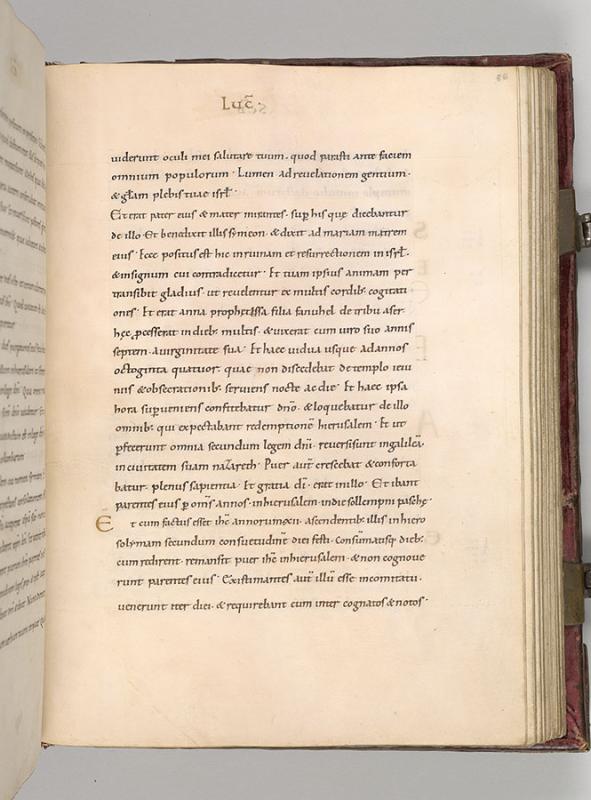 86
Luc̄.
uiderunt oculi mei salutare tuum. quod parasti ante faciem
omnium populorum. Lumen ad reuelationem gentium.
& glām plebis tuae isrl̄.
Et erat pater eius & mater mirantes. sup his que dicebantur
de illo. Et benedixit illis symeon. & dixit ad mariam matrem
eius. Ecce positus est hic in ruinam et resurrectionem in isrl̄.
& insignum cui contradicetur. Et tuam ipsius animam per
transibit gladius. ut reuelentur ex multis cordib; cogitati
ones. Et erat anna prophetissa filia fanuhel de tribu aser.
hęc p̄cesserat in dieb; multis. & uixerat cum uiro suo annis
septem. auirginitate sua. Et haec uidua usque ad annos
octoginta quatuor. quae non discedebat de templo ieiu
niis & obsecrationib; seruiens nocte ac die. Et haec ipsa
hora superueniens confitebatur dn̄o. & loquebatur de illo
omnib; qui expectabant redemptionē hierusalem. Et ut
pfecerunt omnia secundum legem dn̄i. reuersi sunt in galileā.
in ciuitatem suam nazareth. Puer aut̄ crescebat & conforta
batur. plenus sapientia. Et gratia dī. erat in illo. Et ibant
parentes eius p om̄s annos. in hierusalem. in die sollempni paschę.
Et cum factus esset ih̄c annorum xii. ascendentib; illis in hiero
solymam secundum consuetudinē diei festi. consūmatisq; dieb;
cum redirent. remansit puer ih̄c in hierusalem. & non cognoue
runt parentes eius. Existimantes aut̄ illū esse in comitatu.
uenerunt iter diei. & requirebant eum inter cognatos & notos.